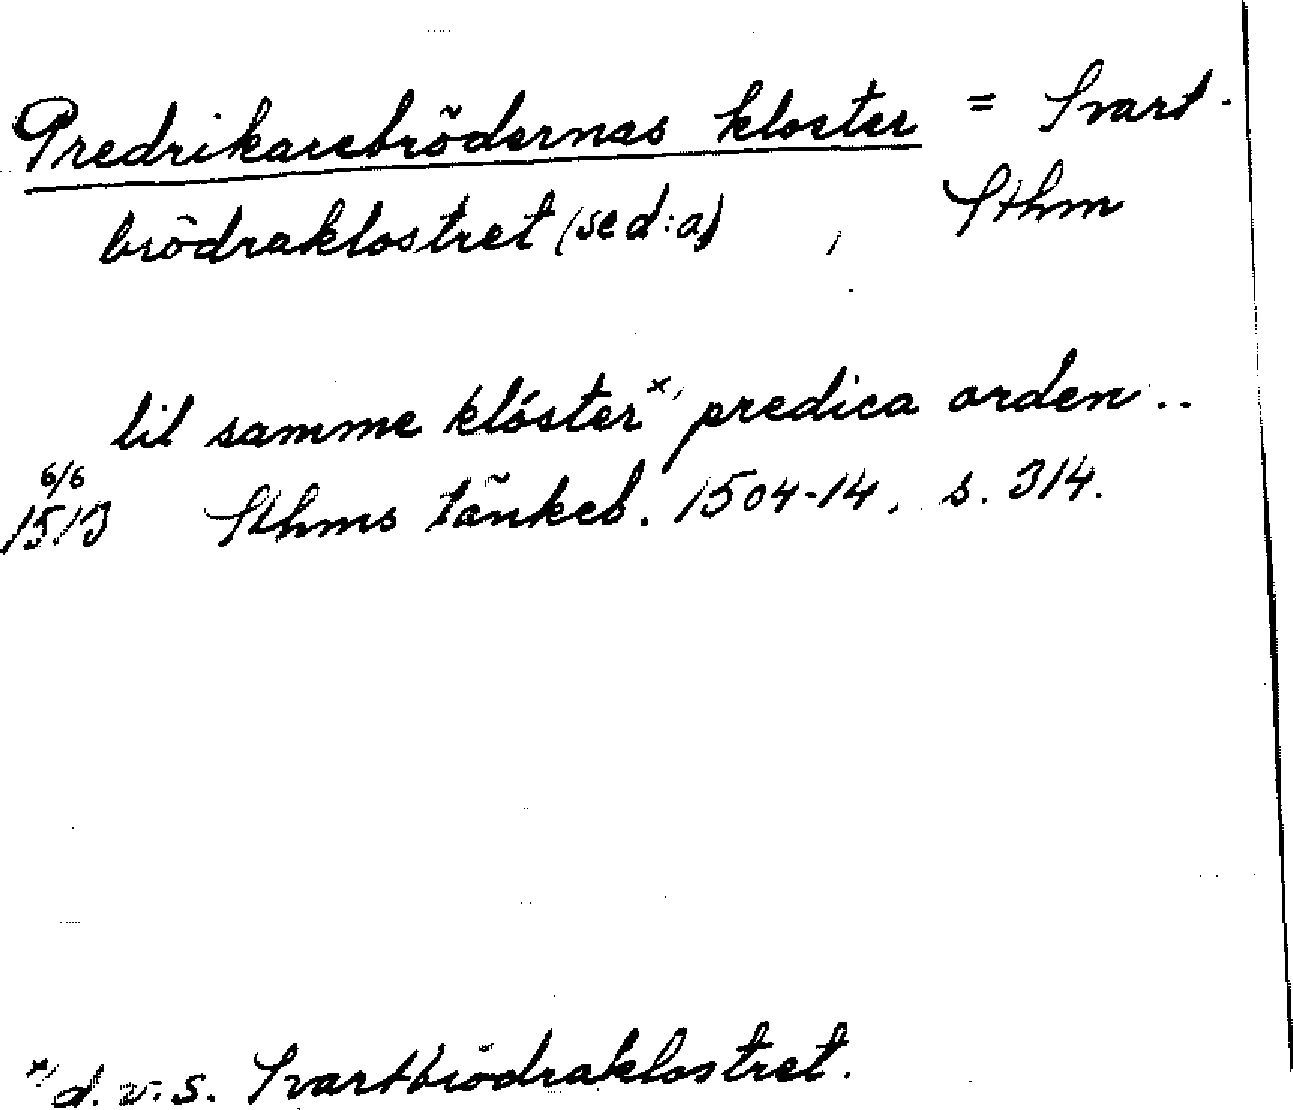 Predrikarebrödernas kloster = Svart-
brödraklostret (se d:a) , Sthm
til samme klóster x) predica orden..
6/6
1513 Sthms tänkeb. 1504-14, s. 314.
x) d.v.s. Svartbrödraklostret.